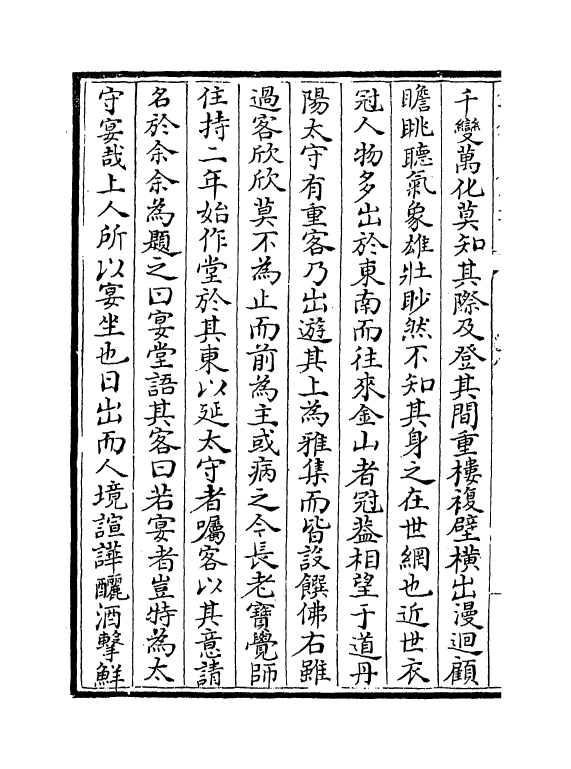 千變萬化莫知其際及登其間重樓複壁橫出漫迴顧
瞻眺聽氣象雄壯眇然不知其身之在世網也近世衣
冠人物多出於東南而往來金山者冠蓋相望于道丹
陽太守有重客乃出遊其上為雅集而皆設饌佛右雖
過客欣欣莫不為止而前為主或病之今長老寶覺師
住持二年始作堂於其東以延太守者囑客以其意請
名於余余為題之曰宴堂語其客曰若宴者豈特為太
守宴哉上人所以宴坐也日出而人境諠譁釃酒擊鮮